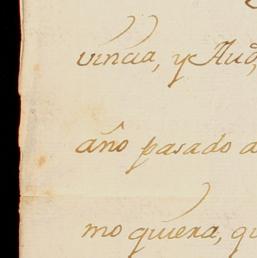 vincia, y Aud
año pasado a
mo quiera, qu